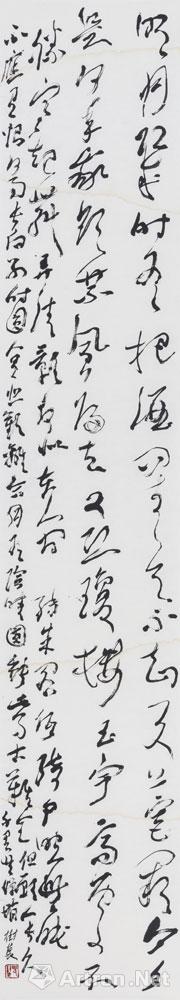 明月几时有把酒问青天不知天上宫阙今夕
是何年我欲乘风归去又恐琼楼玉宇高处不
胜寒起舞弄清影何似在人间 转朱阁低绮户照无眠
不应有恨何事长向别时圆人有悲欢离合月有阴晴圆缺此事古难全但愿人长久
千里共婵娟
Artron.Net